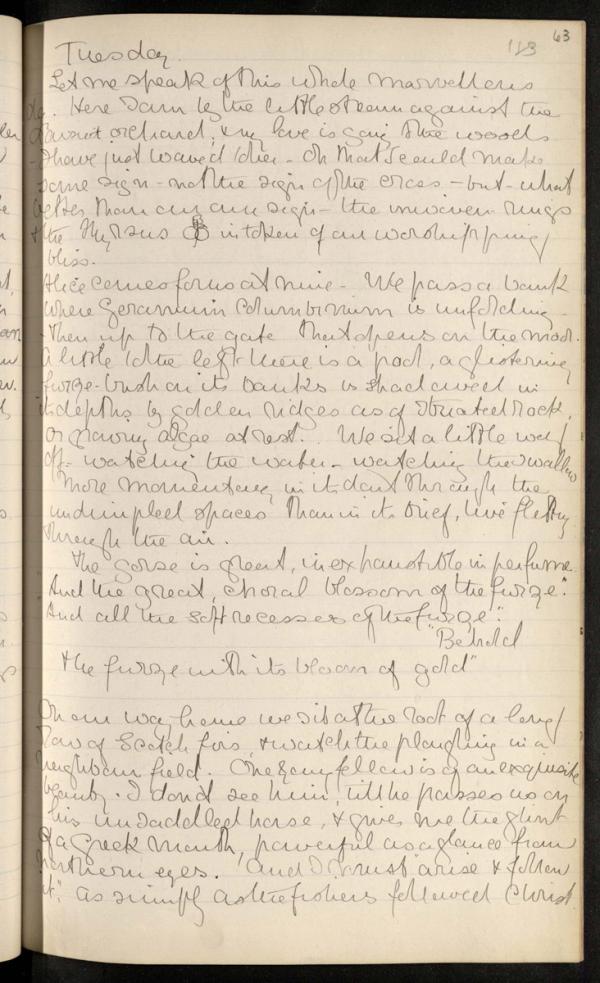 63
113
Tuesday.
Let me speak of this whole marvellous
day. Here I am by the little stream against the
orchard, & my love is going the woods
I have just waved to her - Oh that I could make
some sign - not the sign of the cross - but - what
better than our own sign - the interwoven rings
& the thyrsus in token of our worshipping
bliss.
Alice comes for us at nine - We pass a bank
where Geranium Columbinum is unfolding -
then up to the gate that opens on the moor.
A little to the left there is a pool, a glistening
furze-bush on its banks is shadowed in
its depths by golden ridges as of striated rock,
or growing algae at rest. We sit a little way
off - watching the water - watching the swallow
more momentary in its dart through the
undimpled spaces than in its brief, live flitting
through the air.
The gorse is great, inexhaustible in perfume.
"And the great, choral blossom of the furze."
"And all the soft recesses of the furze".
"Behold
the furze with its bloom of gold"
On our way home we sit at the root of a long
row of Scotch firs, & watch the ploughing in a
neighbour field. One young fellow is of an exquisite
beauty. I do not see him, till he passes us on
his unsaddled horse, & gives me the glint
of a Greek mouth, powerful as a glance from
northern eyes. "And I must arise & follow
it", as simply as the fishers followed Christ